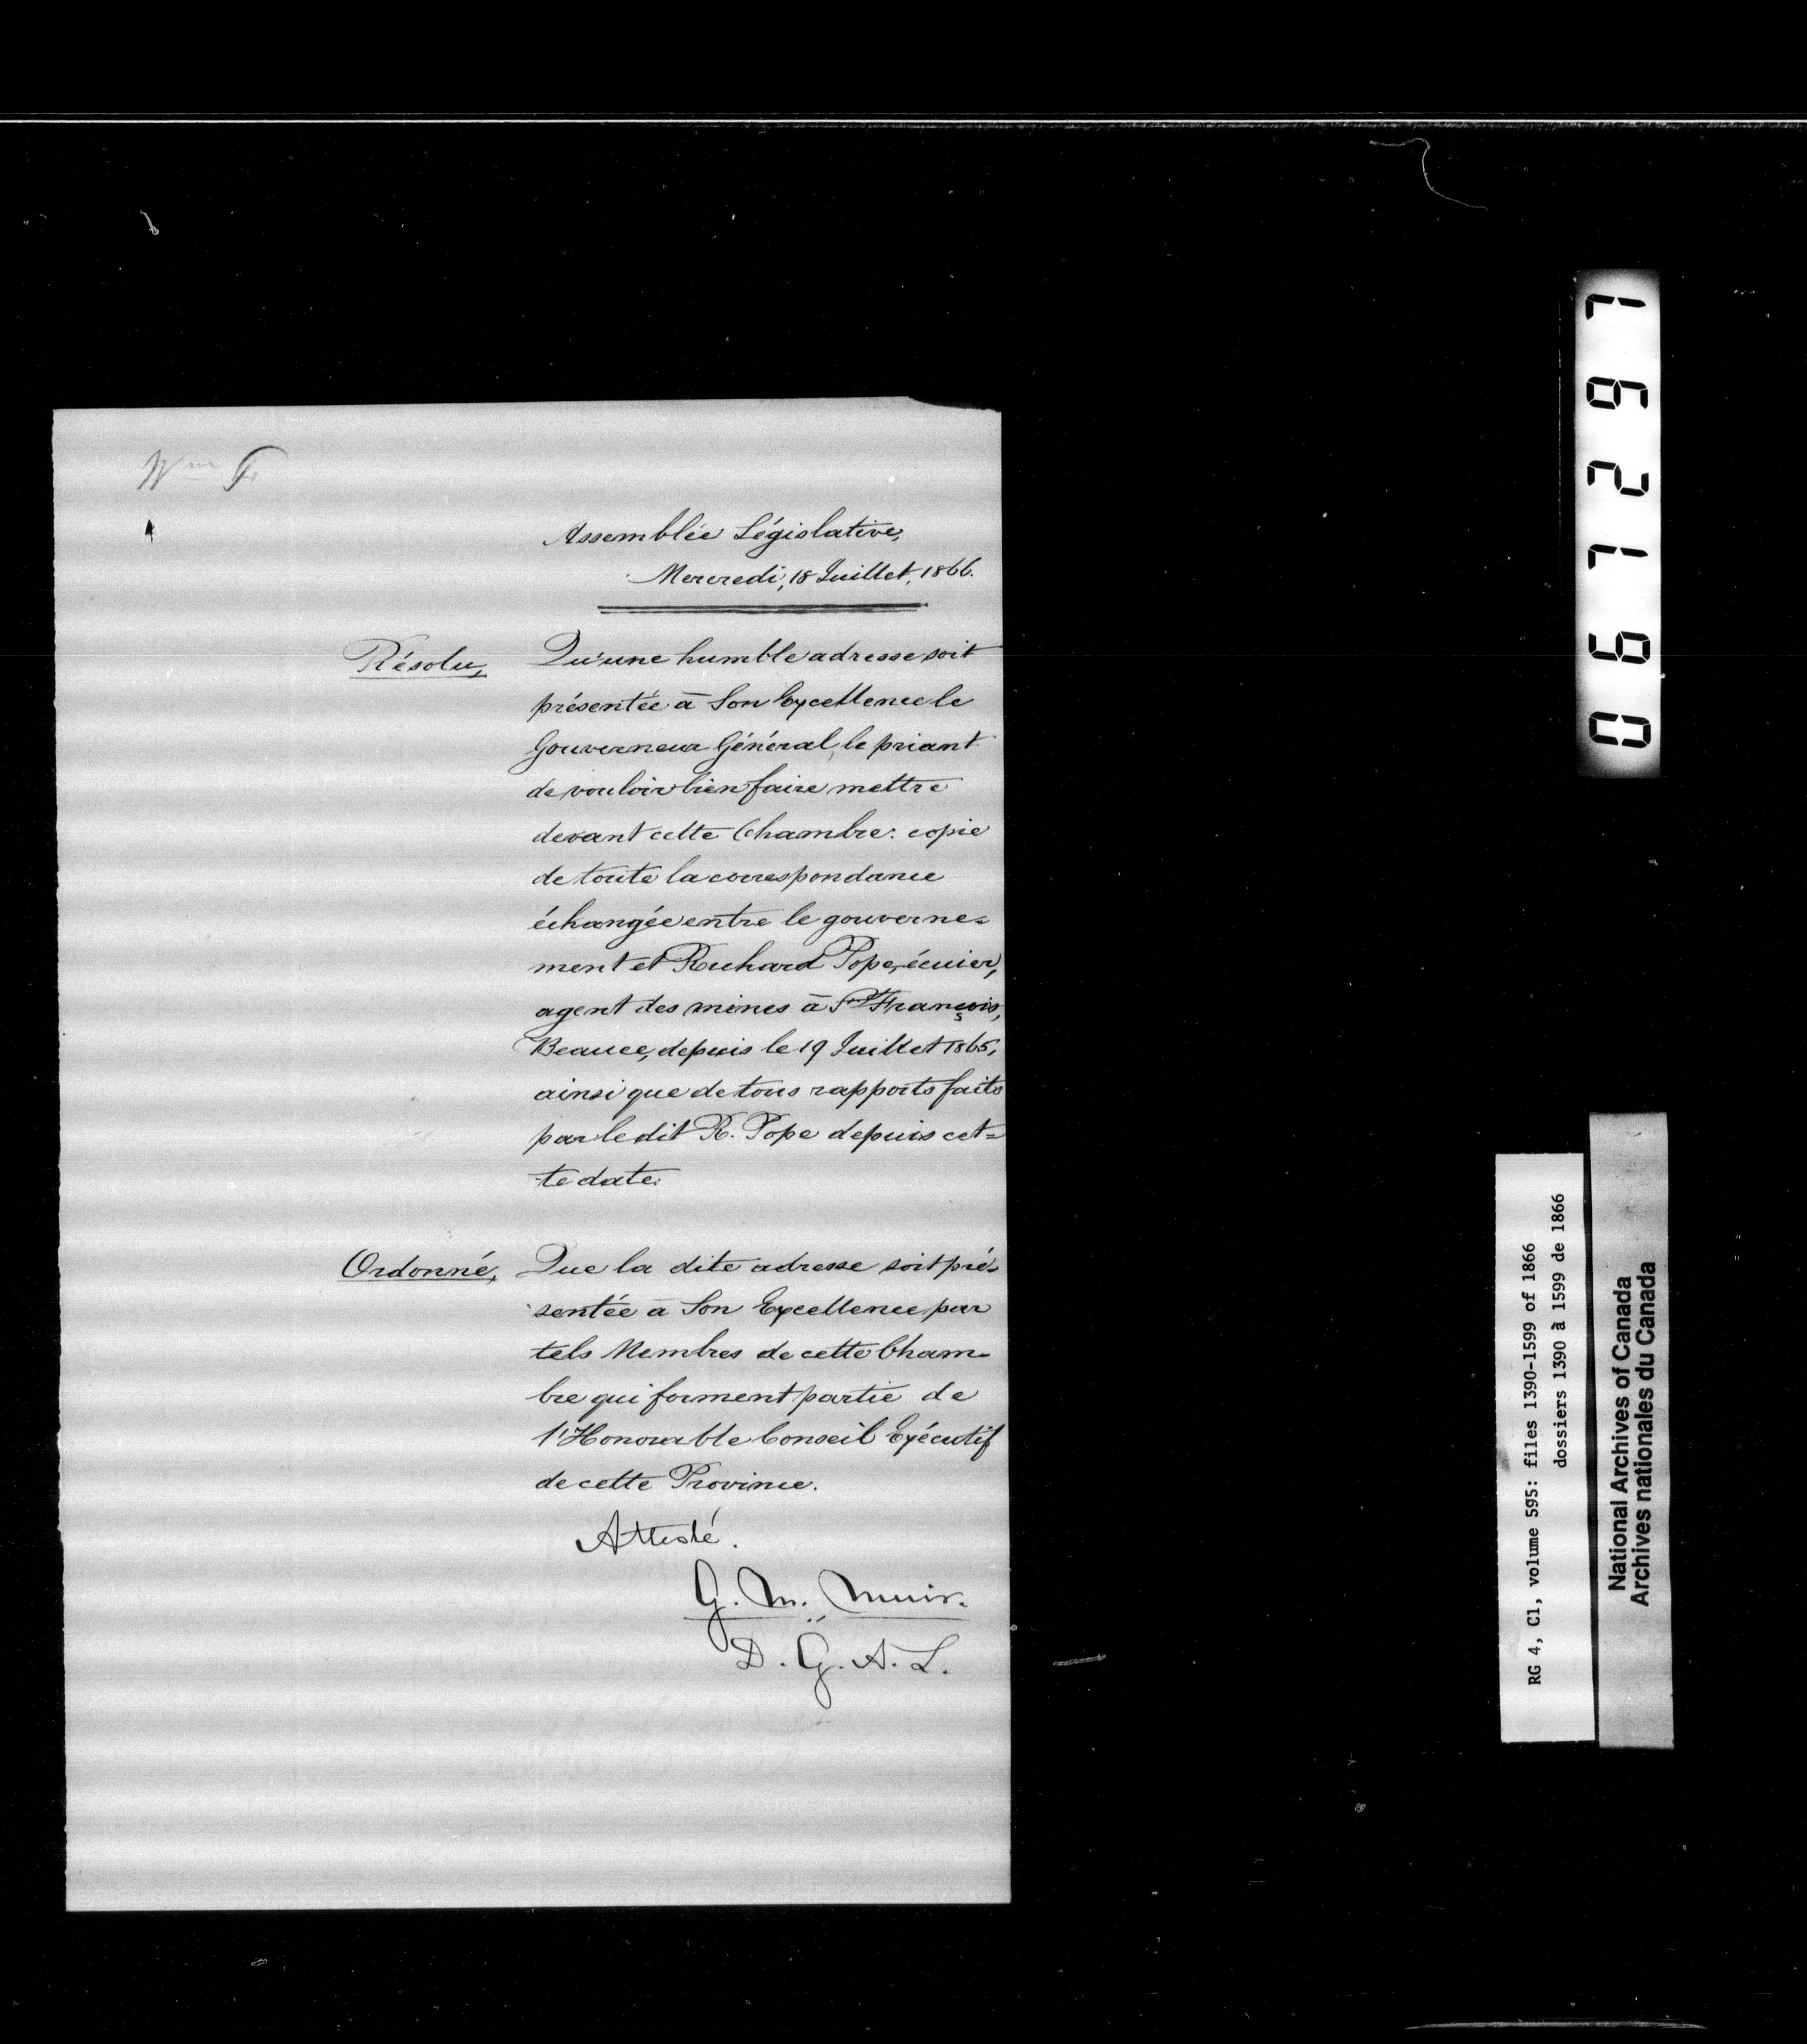 Wm F.
Assemblée Législative,
Mercredi, 18 Juillet, 1866.
Résolu, Qu'une humble adresse soit
présentée à Son Excellence le
Gouverneur Général, le priant
de vouloir bien faire mettre
devant cette Chambre: copie
de toute la correspondance
échangée entre le gouverne=
ment et Richard Pope, écuier,
agent des mines à St François,
Beauce, depuis le 19 Juillet 1865,
ainsi que de tous rapports faits
par le dit R. Pope depuis cet=
te date.
Ordonné, Que la dite adresse soit pré-
sentée à Son Excellence par
tels Membres de cette Cham-
bre qui forment partie de
l'Honorable Conseil Exécutif
de cette Province.
Attesté.
G. M. Muir.
D. G. A. L.
061297
RG 4, C1, volume 595: files 1390-1599 of 1866
dossiers 1390 à 1599 de 1866
National Archives of Canada
Archives nationales du Canada